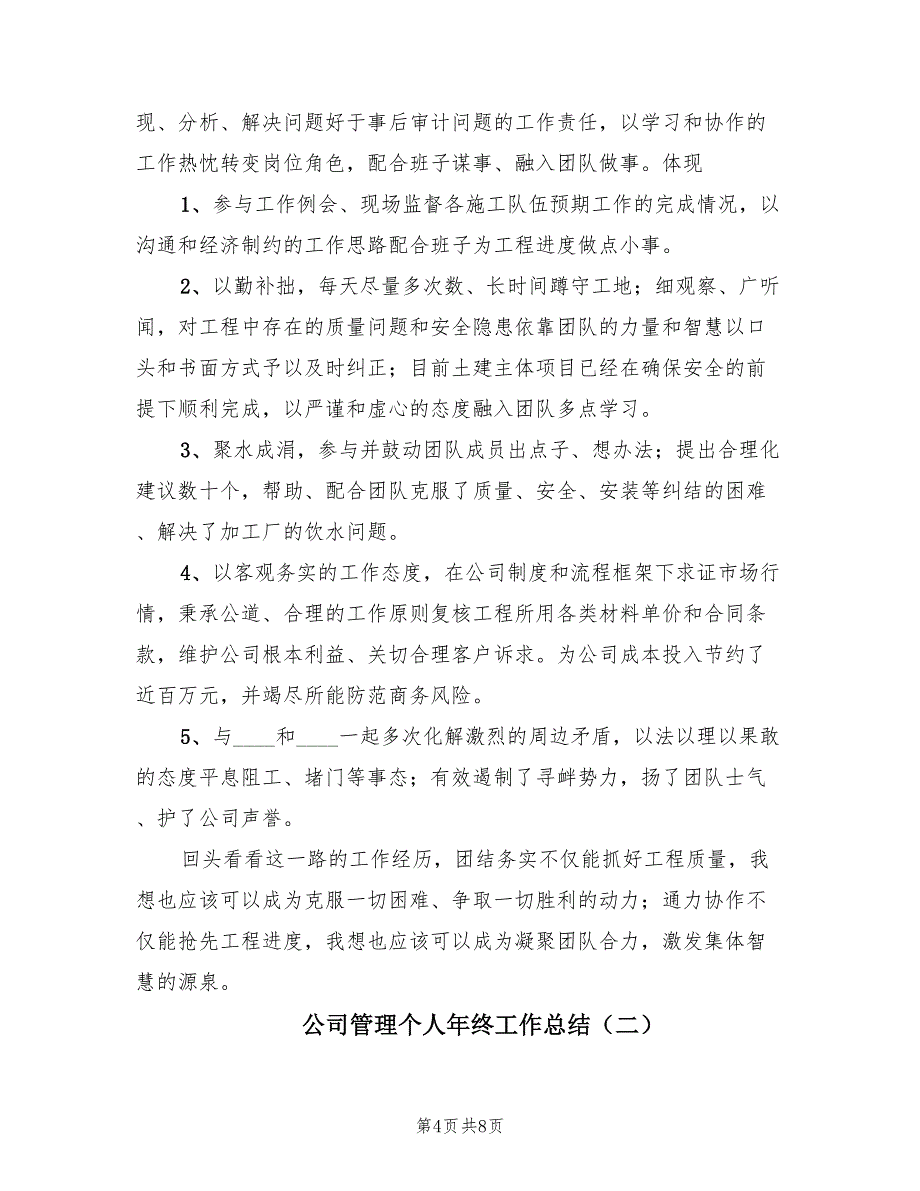 现、分析、解决问题好于事后审计问题的工作责任，以学习和协作的
工作热忱转变岗位角色，配合班子谋事、融入团队做事。体现
1、参与工作例会、现场监督各施工队伍预期工作的完成情况，以
沟通和经济制约的工作思路配合班子为工程进度做点小事。
2、以勤补拙，每天尽量多次数、长时间蹲守工地；细观察、广听
闻，对工程中存在的质量问题和安全隐患依靠团队的力量和智慧以口
头和书面方式予以及时纠正；目前土建主体项目已经在确保安全的前
提下顺利完成，以严谨和虚心的态度融入团队多点学习。
3、聚水成涓，参与并鼓动团队成员出点子、想办法；提出合理化
建议数十个，帮助、配合团队克服了质量、安全、安装等纠结的困难
、解决了加工厂的饮水问题。
4、以客观务实的工作态度，在公司制度和流程框架下求证市场行
情，秉承公道、合理的工作原则复核工程所用各类材料单价和合同条
款，维护公司根本利益、关切合理客户诉求。为公司成本投入节约了
近百万元，并竭尽所能防范商务风险。
5、与____和____一起多次化解激烈的周边矛盾，以法以理以果敢
的态度平息阻工、堵门等事态；有效遏制了寻衅势力，扬了团队士气
、护了公司声誉。
回头看看这一路的工作经历，团结务实不仅能抓好工程质量，我
想也应该可以成为克服一切困难、争取一切胜利的动力；通力协作不
仅能抢先工程进度，我想也应该可以成为凝聚团队合力，激发集体智
慧的源泉。
公司管理个人年终工作总结（二）
第4页共8页